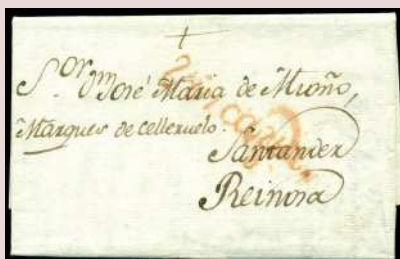 S.or Dn José Maria de Mioño,
Marques de Celleruelo.
Santander
Reinosa